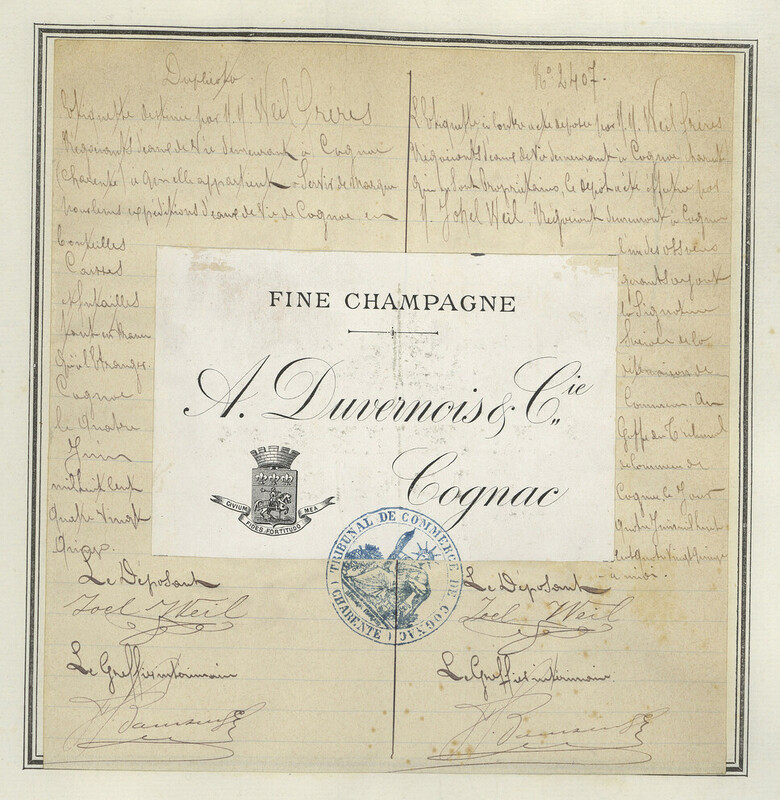 Duplicata
Etiquette destinée par M.M. Weil Frères
Négociants d'eaux de Vie demeurant à Cognac
(Charente) à qui elle appartient à Servir de Marque
pour leurs expéditions d'eaux de Vie de Cognac, en
bouteilles
Caisses
et futailles
tant en France
qu'à l'étranger.
Cognac
le quatre
Juin
mil huit cent
quatre vingt
quinze.
Le Déposant
Joel Weil
Le Greffier intérimaire
No 2407.
L'Etiquette ci contre a été déposée par M.M. Weil Frères
Négociants d'eaux de Vie demeurant à Cognac
qui en sont propriétaires, ce dépôt a été effectué par
M. Joël Weil, Négociant demeurant à Cognac
l'un des associés
gérants ayant
la Signature
Sociale de la
de
Commerce. Au
Greffe du Tribunal
de Commerce de
Cognac le Jour
quatre Juin mil huit
cent quatre vingt quinze
à midi.
Le Déposant
Joel Weil
Le Greffier intérimaire
FINE CHAMPAGNE
A. Duvernois & Cie
Cognac
CIVIUM MEA
FIDES FORTITUDO
TRIBUNAL DE COMMERCE DE COGNAC
(CHARENTE)